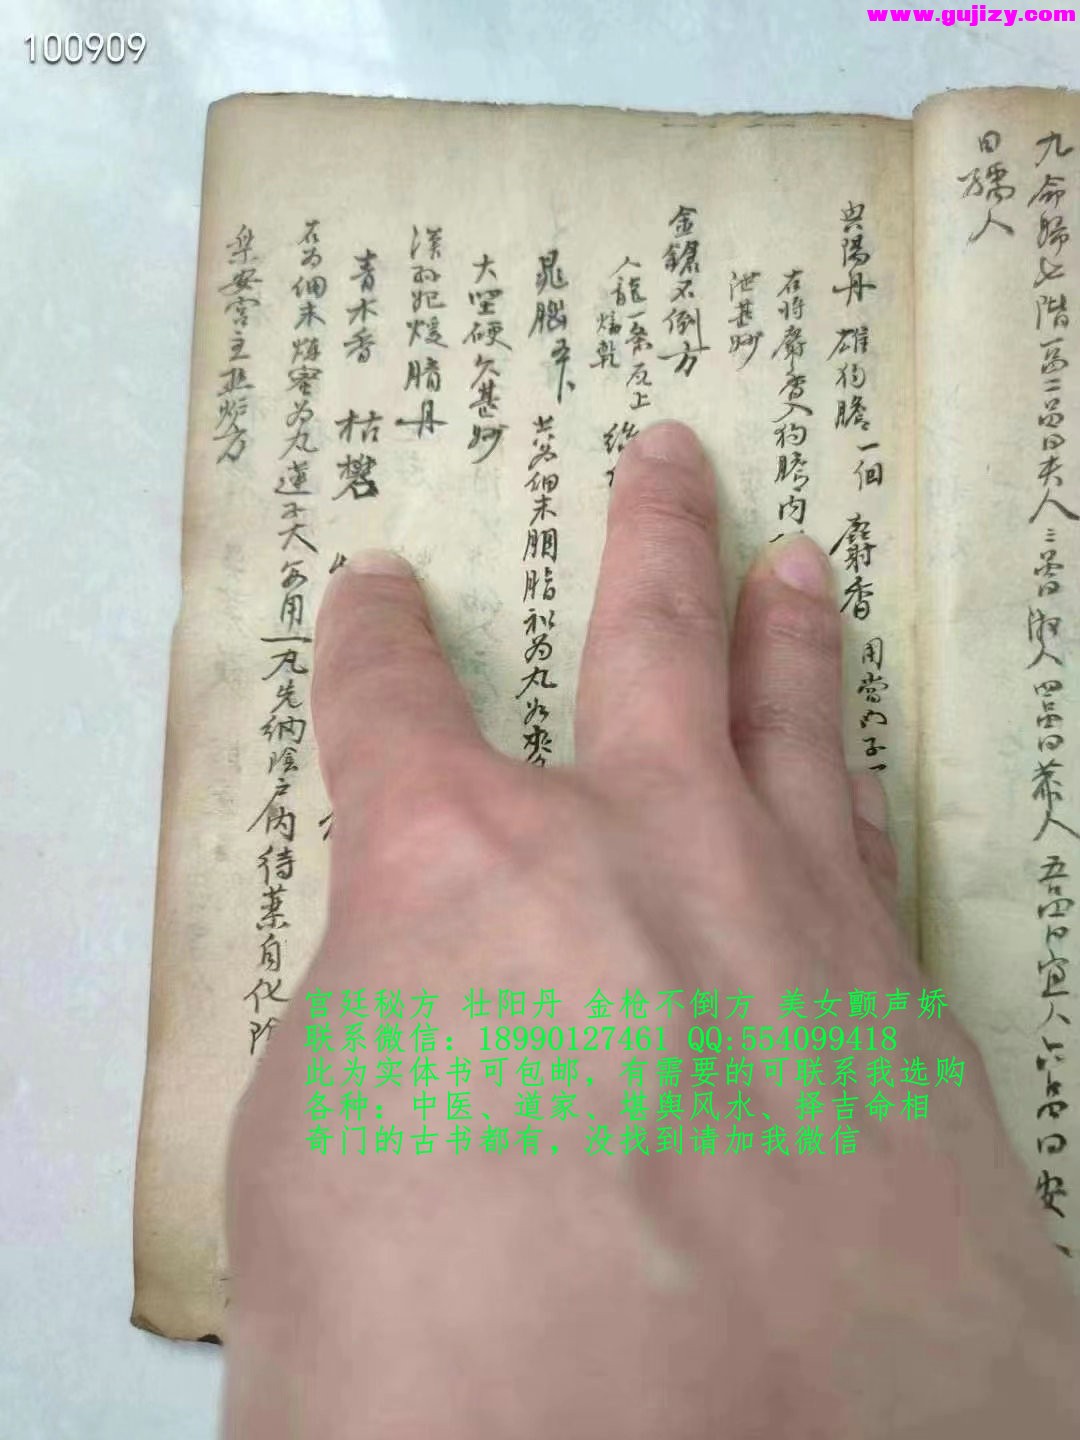 www.gujizy.com
100909
九命婦七階一品二品曰夫人三品曰淑人四品曰恭人五品曰宜人六品曰安
曰孺人
興陽丹 雄狗膽一個 麝香 用當門子一
右将麝香入狗膽内
泄甚妙
金鎗不倒方
人龍一条瓦上
焙乾
共為細末胭脂和為丸如
大堅硬久甚妙
漢孙妃煖腊丹
青木香 枯礬
右为细末煉蜜为丸蓮子大每用一丸先纳陰户内待藥自化陰
宫廷秘方 壮阳丹 金枪不倒方 美女颤声娇
联系微信：18990127461 QQ:554099418
此为实体书可包邮，有需要的可联系我选购
各种：中医、道家、堪舆风水、择吉命相
奇门的古书都有，没找到请加我微信